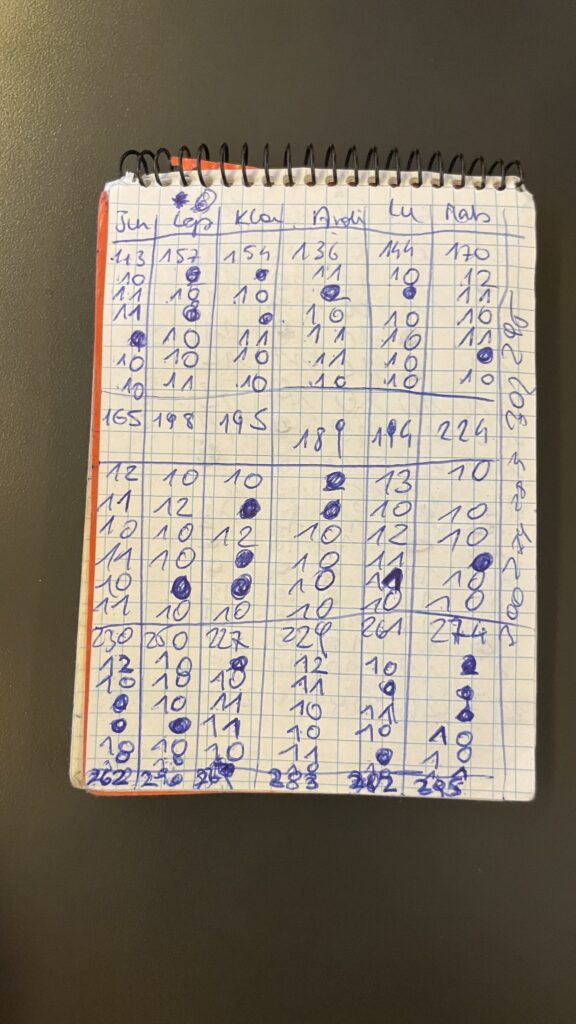 Jun Lep Klau Andi Lu Mab
113 157 154 136 144 170
10 11 10 12
11 10 10 11
11 10 10 10
10 11 11 10 11
10 10 10 11 10
10 11 10 10 10 10
165 198 195 189 194 224
12 10 10 13 10
11 12 10 10
10 10 12 10 12 10
11 10 10 11
10 10 10
11 10 10 10 10 10
230 250 227 229 261 274
12 10 12 10
10 10 10 11
10 11 10 11
11 10 10 10
10 10 10 11 10
262 283 282 295
302 295